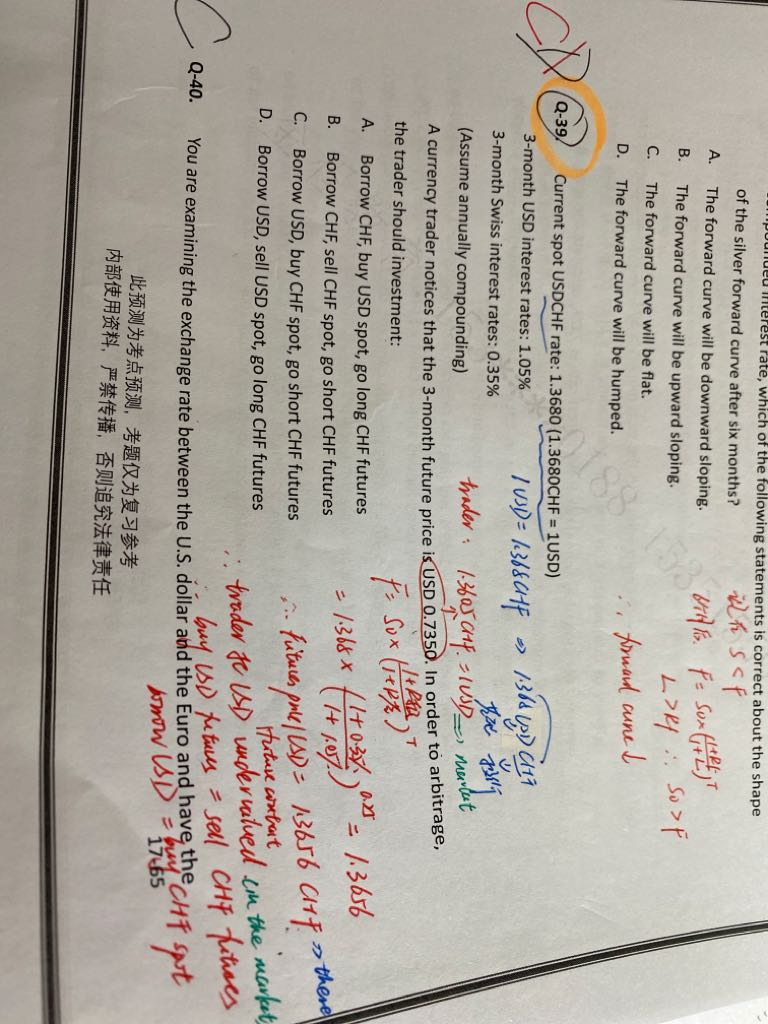 compounded interest rate, which of the following statements is correct about the shape
of the silver forward curve after six months?
A. The forward curve will be downward sloping.
B. The forward curve will be upward sloping.
C. The forward curve will be flat.
D. The forward curve will be humped.
∴ forward curve ↓
L > Rf ∴ S0 > F
Q-39, Current spot USDCHF rate: 1.3680 (1.3680CHF = 1USD)
3-month USD interest rates: 1.05%
1 USD = 1.368 CHF ⇒ 1.368 USD CHF
3-month Swiss interest rates: 0.35%
(Assume annually compounding)
trader: 1.3605 CHF = 1 USD ⇒ market
A currency trader notices that the 3-month future price is USD 0.7350. In order to arbitrage,
the trader should investment:
A. Borrow CHF, buy USD spot, go long CHF futures
B. Borrow CHF, sell CHF spot, go short CHF futures
C. Borrow USD, buy CHF spot, go short CHF futures
D. Borrow USD, sell USD spot, go long CHF futures
= 1.368 × (1 + 0.35% / 1 + 1.05%)^0.25 = 1.3656
∴ Futures price 1 USD = 1.3656 CHF ⇒ there
future contract
∴ trader 的 USD undervalued (in the market)
∴ buy USD futures = sell CHF futures
borrow USD = buy CHF spot
Q-40. You are examining the exchange rate between the U.S. dollar and the Euro and have the
17-65
此预测为考点预测，考题仅为复习参考
内部使用资料，严禁传播，否则追究法律责任